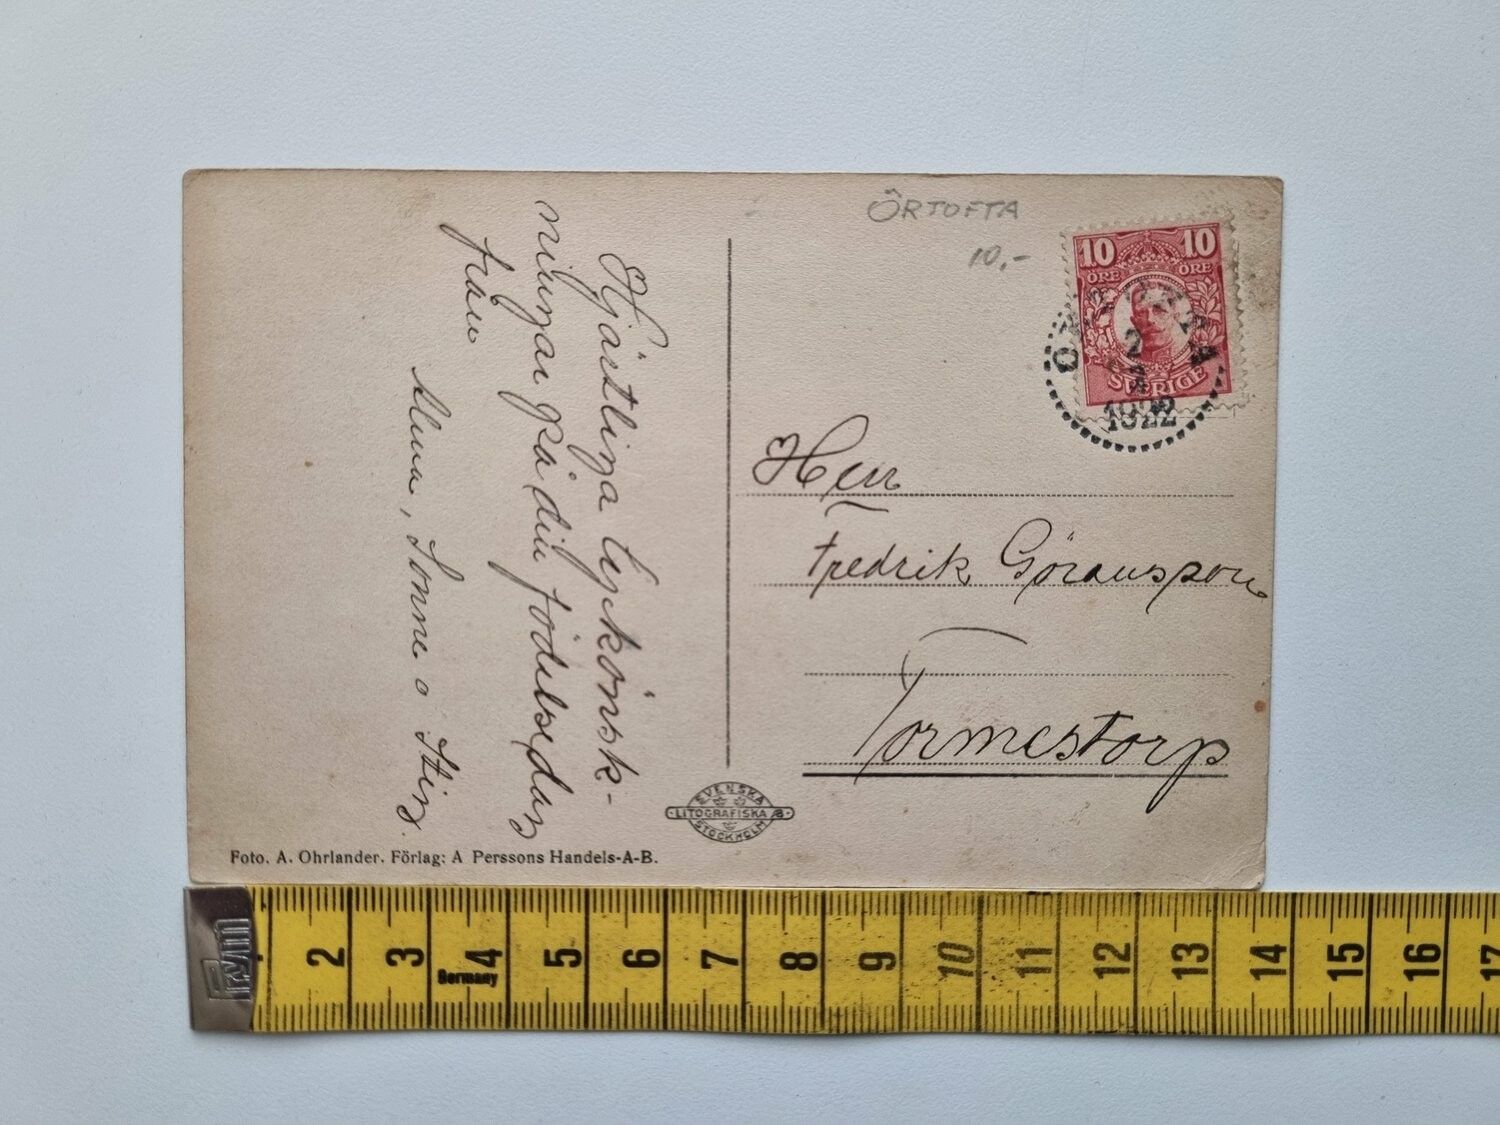 ÖRTOFTA
10,-
10 10
ÖRE ÖRE
SVERIGE
ÖRTOFTA
2
1922
Hjärtliga lyckönsk-
ningar på din födelsedag
från
Alma, Sonne o Stig.
Herr
Fredrik Göransson
Tormestorp
SVENSKA
LITOGRAFISKA AB
STOCKHOLM
Foto. A. Ohrlander. Förlag: A Perssons Handels-A-B.
Prym
Germany
2 3 4 5 6 7 8 9 10 11 12 13 14 15 16 17